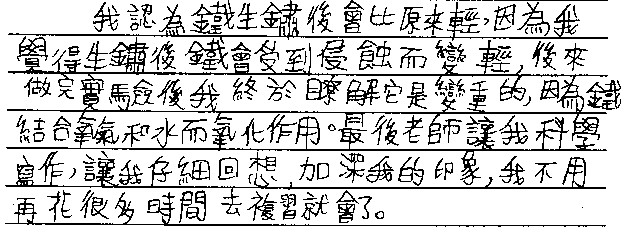 我認為鐵生鏽後會比原來輕,因為我
覺得生鏽後鐵會受到侵蝕而變輕,後來
做完實驗後我終於瞭解它是變重的,因為鐵
結合氧氣和水而氧化作用。最後老師讓我科學
寫作,讓我仔細回想,加深我的印象,我不用
再花很多時間去複習就會了。